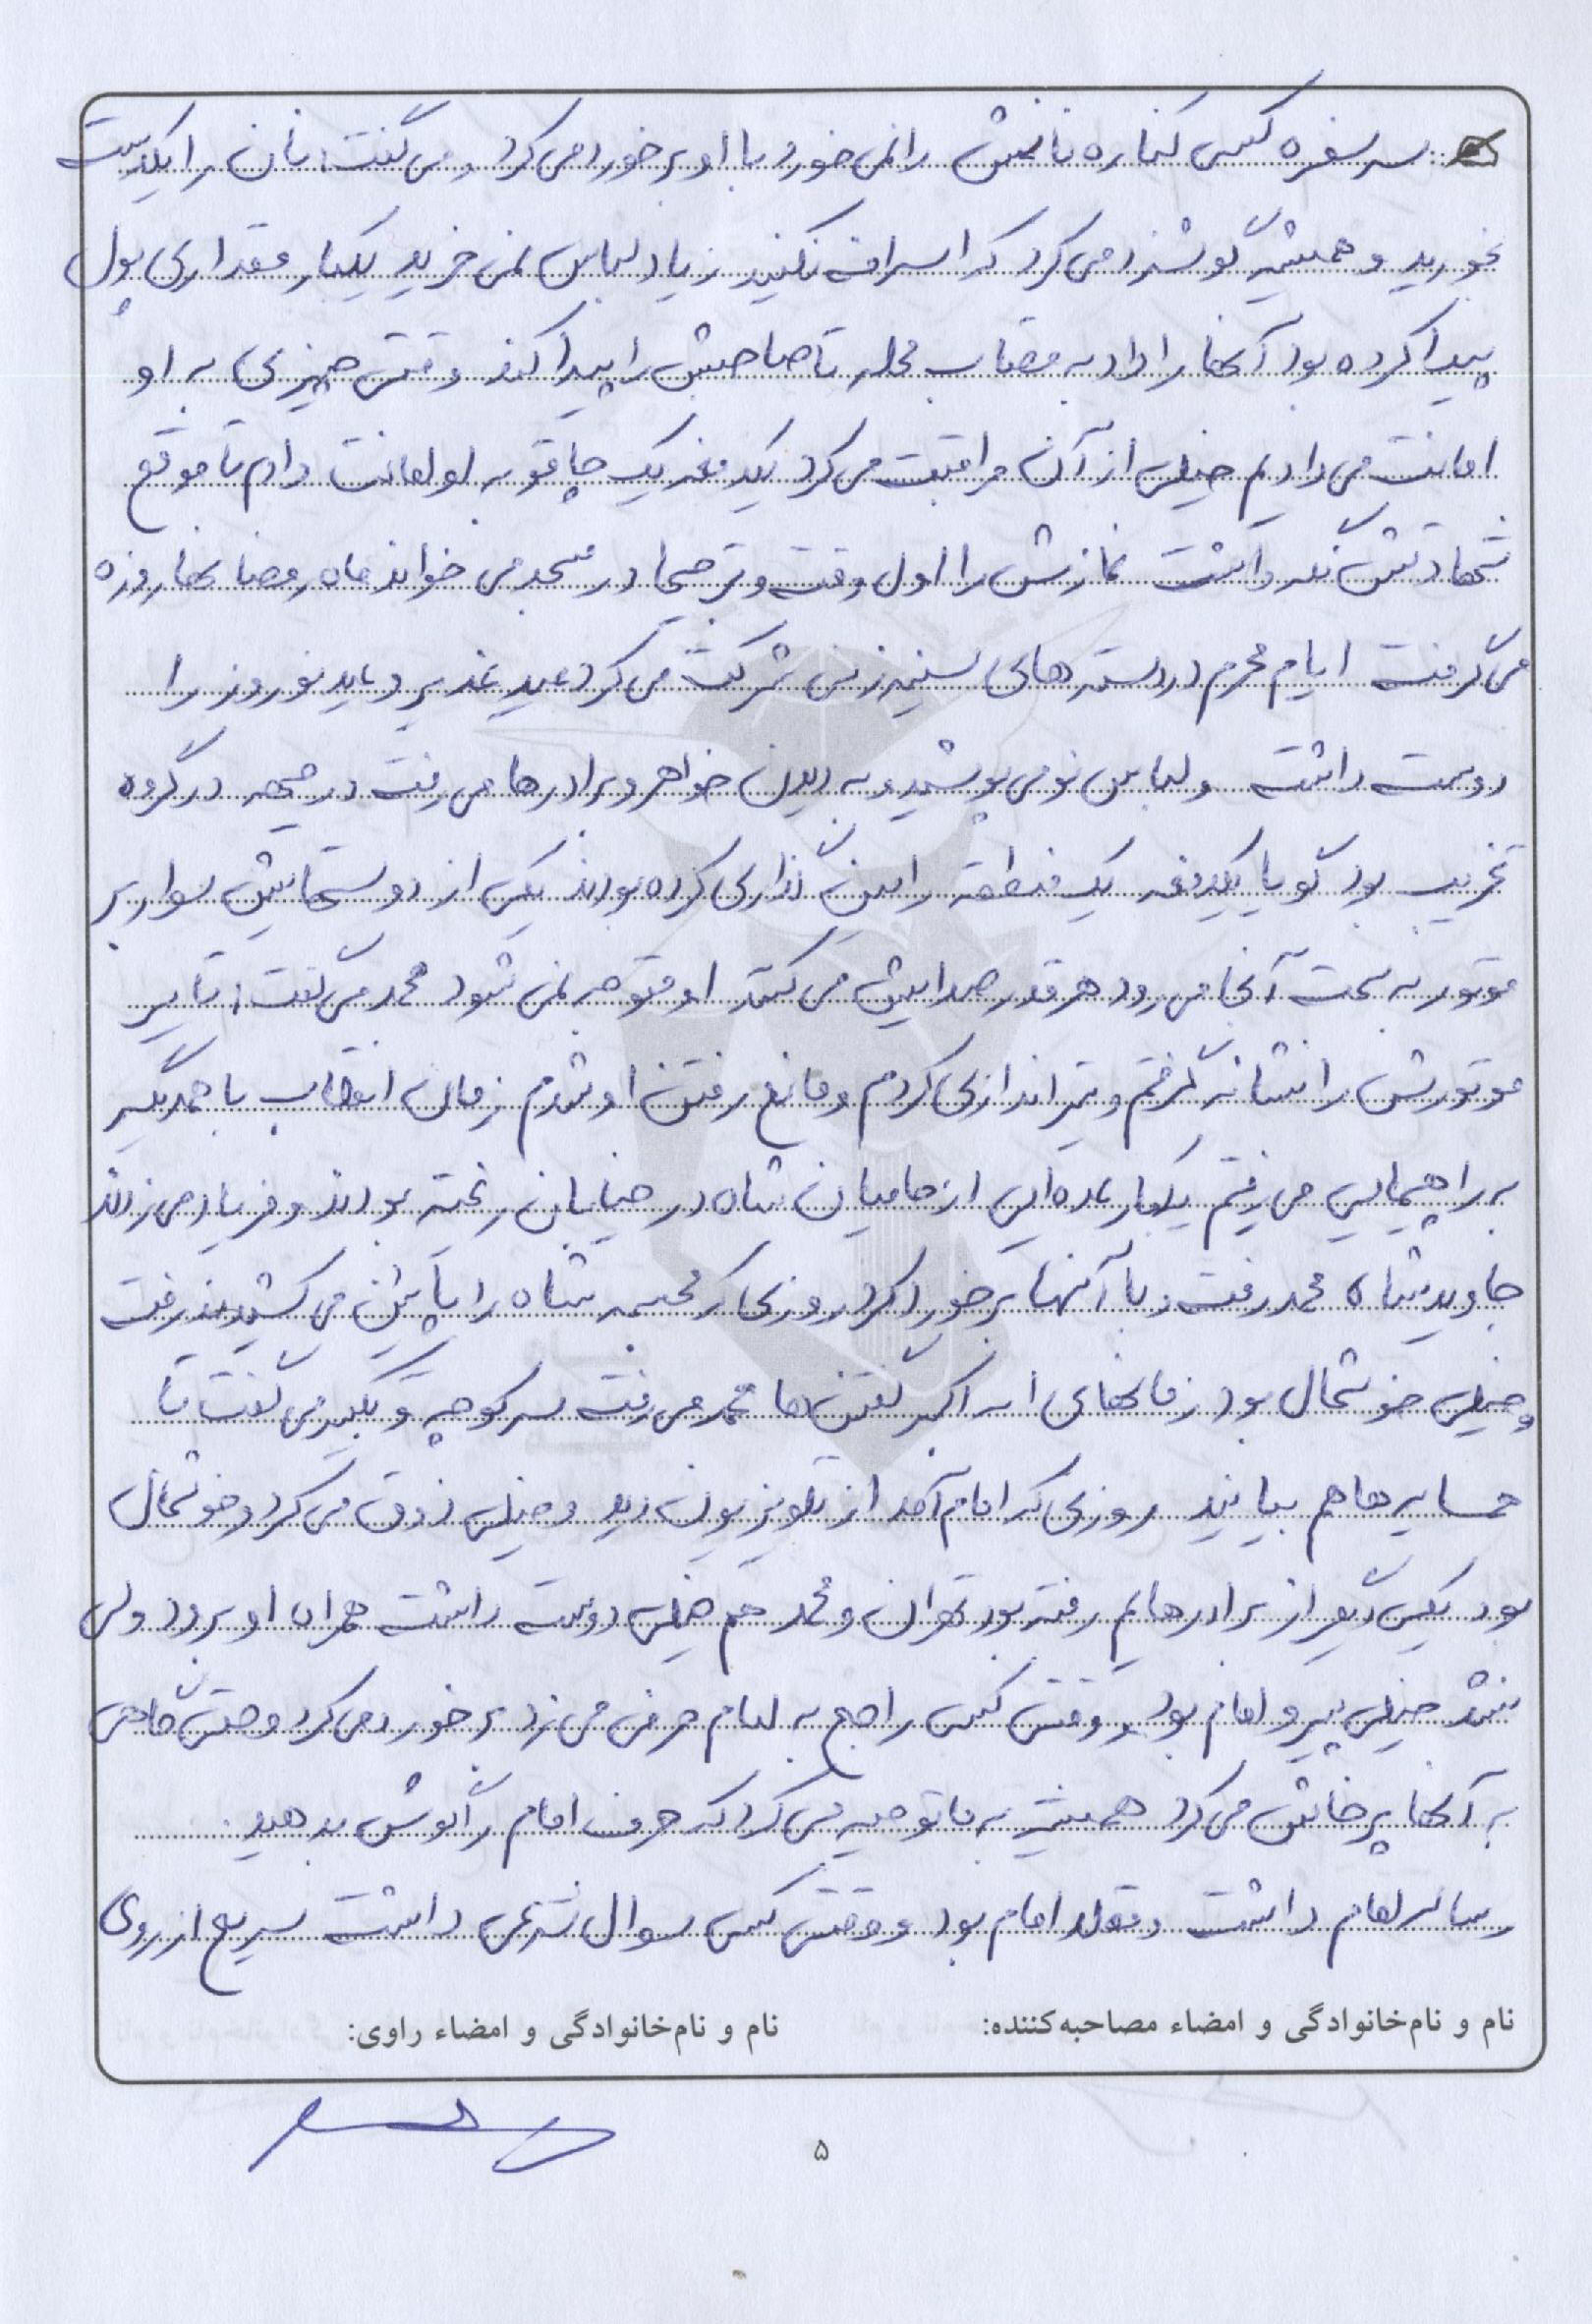 سر سفره کسی کناره نانش را نمی خورد با او برخورد می کرد و می گفت: نان را یکدست
بخورید و همیشه گوشزد می کرد که اسراف نکنید زیاد لباس نمی خرید یکبار مقداری پول
پیدا کرده بود آنها را داد به قصاب محله تا صاحبش را پیدا کند وقتی چیزی به او
امانت می دادیم خیلی از آن مراقبت می کرد یکدفعه یک چاقو به او امانت دادم تا موقع
شهادتش نگه داشت نمازش را اول وقت و ترجیحا در مسجد می خواند ماه رمضانها روزه
می گرفت ایام محرم در دسته های سینه زنی شرکت می کرد عید غدیر و عید نوروز را
دوست داشت و لباس نو می پوشید و به دیدن خواهر و برادرها می رفت در جبهه در گروه
تخریب بود گویا یکدفعه یک منطقه را مین گذاری کرده بودند یکی از دوستهایش سوار بر
موتور به سمت آنجا می رود هر قدر صدایش می کنند او متوجه نمی شود محمد می گفت: تایر
موتورش را نشانه گرفتم و تیراندازی کردم و مانع رفتن او شدم زمان انقلاب با همدیگر
به راهپیمایی می رفتیم یکبار عده ای از حامیان شاه در خیابان ریخته بودند و فریاد می زدند
جاوید شاه محمد رفت و با آنها برخورد کرد روزی که مجسمه شاه را پائین می کشیدند رفت
و خیلی خوشحال بود زمانهای الله اکبر گفتن ها محمد می رفت سر کوچه و تکبیر می گفت تا
همسایه ها هم بیایند روزی که امام آمد از تلویزیون دید و خیلی ذوق می کرد و خوشحال
بود یکی دیگر از برادرهایم رفته بود تهران و محمد هم خیلی دوست داشت همراه او برود ولی
نشد خیلی پیرو امام بود و وقتی کسی راجع به امام حرفی می زد برخورد می کرد و حتی گاهی
به آنها پرخاش می کرد همیشه به ما توصیه می کرد که حرف امام را گوش بدهید.
رساله امام داشت و مقلد امام بود و وقتی کسی سوال شرعی داشت سریع از روی
نام و نام‌خانوادگی و امضاء مصاحبه‌کننده: نام و نام‌خانوادگی و امضاء راوی:
۵